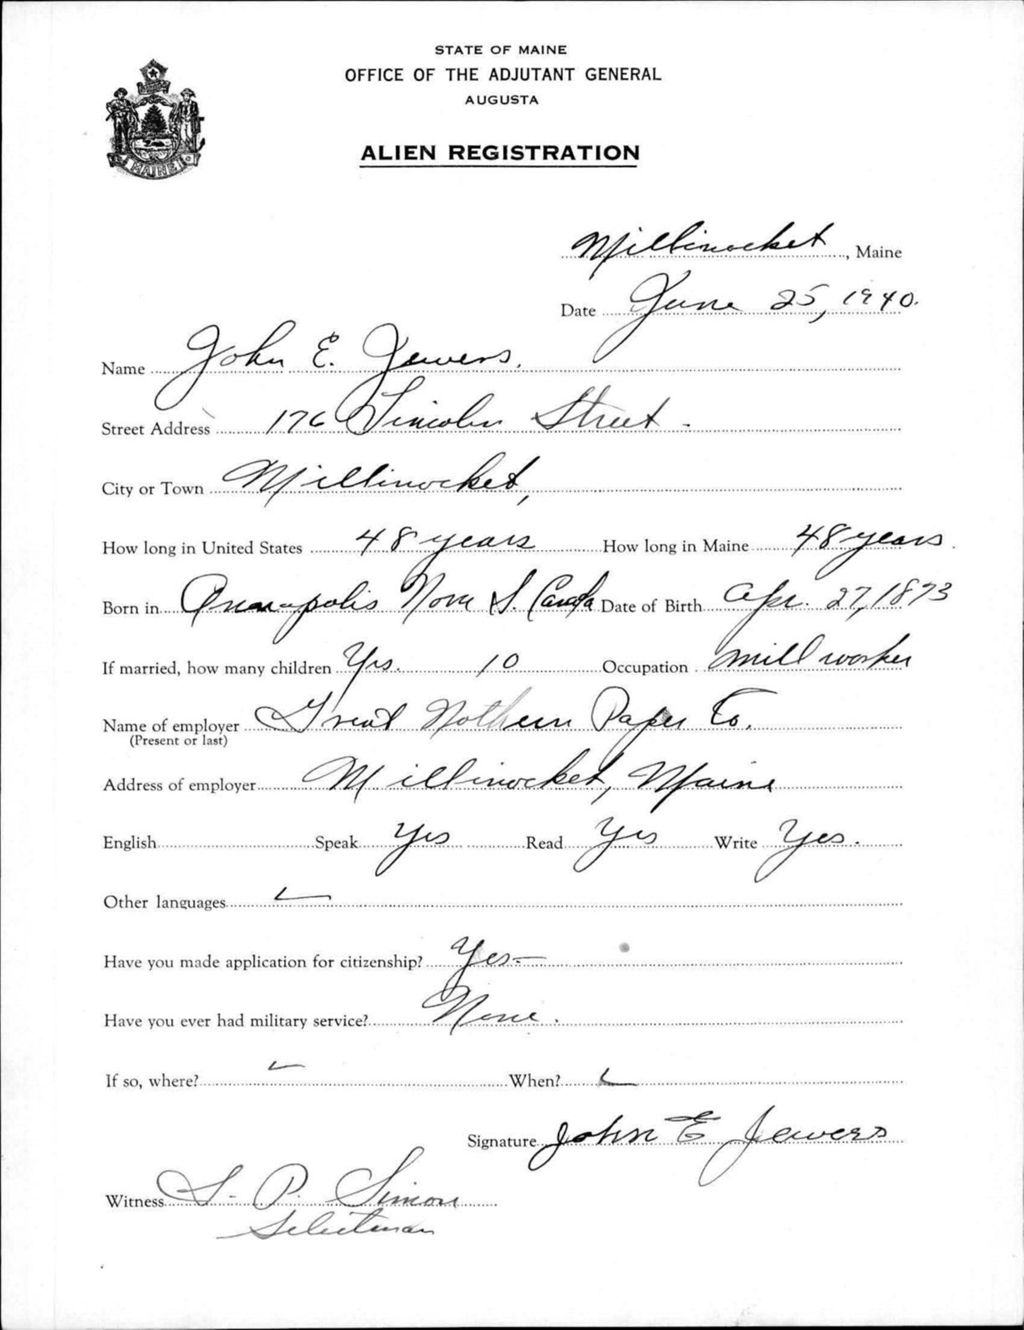 STATE OF MAINE
OFFICE OF THE ADJUTANT GENERAL
AUGUSTA
ALIEN REGISTRATION
MAINE
Millinocket, Maine
Date June 25, 1940.
Name John E. Jewers.
Street Address 176 Lincoln Street.
City or Town Millinocket,
How long in United States 48 years How long in Maine 48 years.
Born in Annapolis Nova S. Canada Date of Birth Apr. 27, 1873
If married, how many children Yes. 10 Occupation Mill worker
Name of employer Great Nothern Paper Co.
(Present or last)
Address of employer Millinocket, Maine
English Speak Yes Read Yes Write Yes.
Other languages
Have you made application for citizenship? Yes-
Have you ever had military service? None.
If so, where? When?
Signature John E Jewers
Witness P. Simon
Selectman